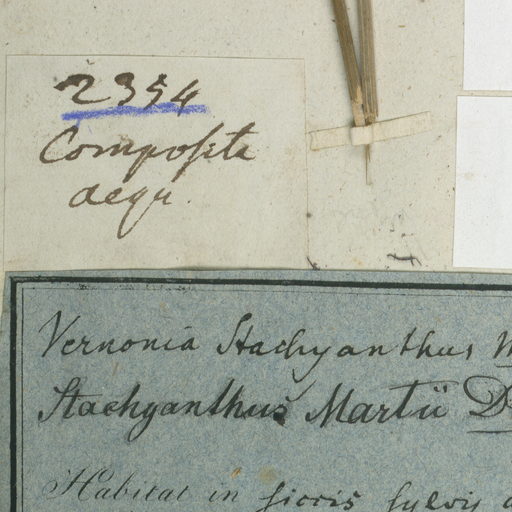 2354
Composita
aequ.
Vernonia Stachyanthus
Stachyanthus Martii D
Habitat in siccis sylvis